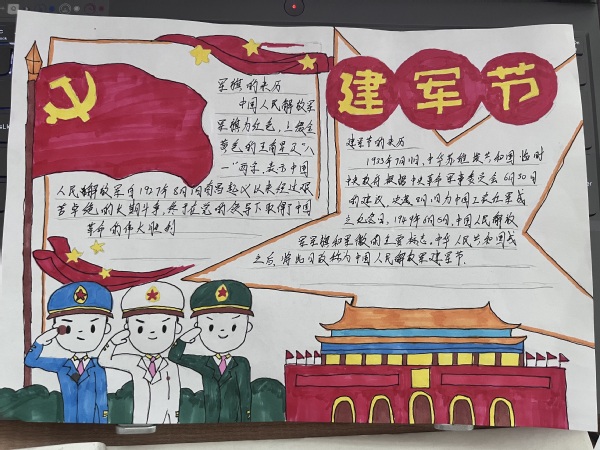 建军节
军旗的来历
中国人民解放军
军旗为红色,上缀金
黄色的五角星及"八
一"两字,表示中国
人民解放军自1927年8月1日南昌起义以来经过艰
苦卓绝的长期斗争,终于在党的领导下取得了中国
革命的伟大胜利
建军节的来历
1933年7月1日,中华苏维埃共和国临时
中央政府根据中央革命军事委员会6月30日
的建议,决定8月1日为中国工农红军成
立纪念日,1949年6月15日,中国人民解放
军军旗和军徽的主要标志。中华人民共和国成
立后,将此日改称为中国人民解放军建军节.